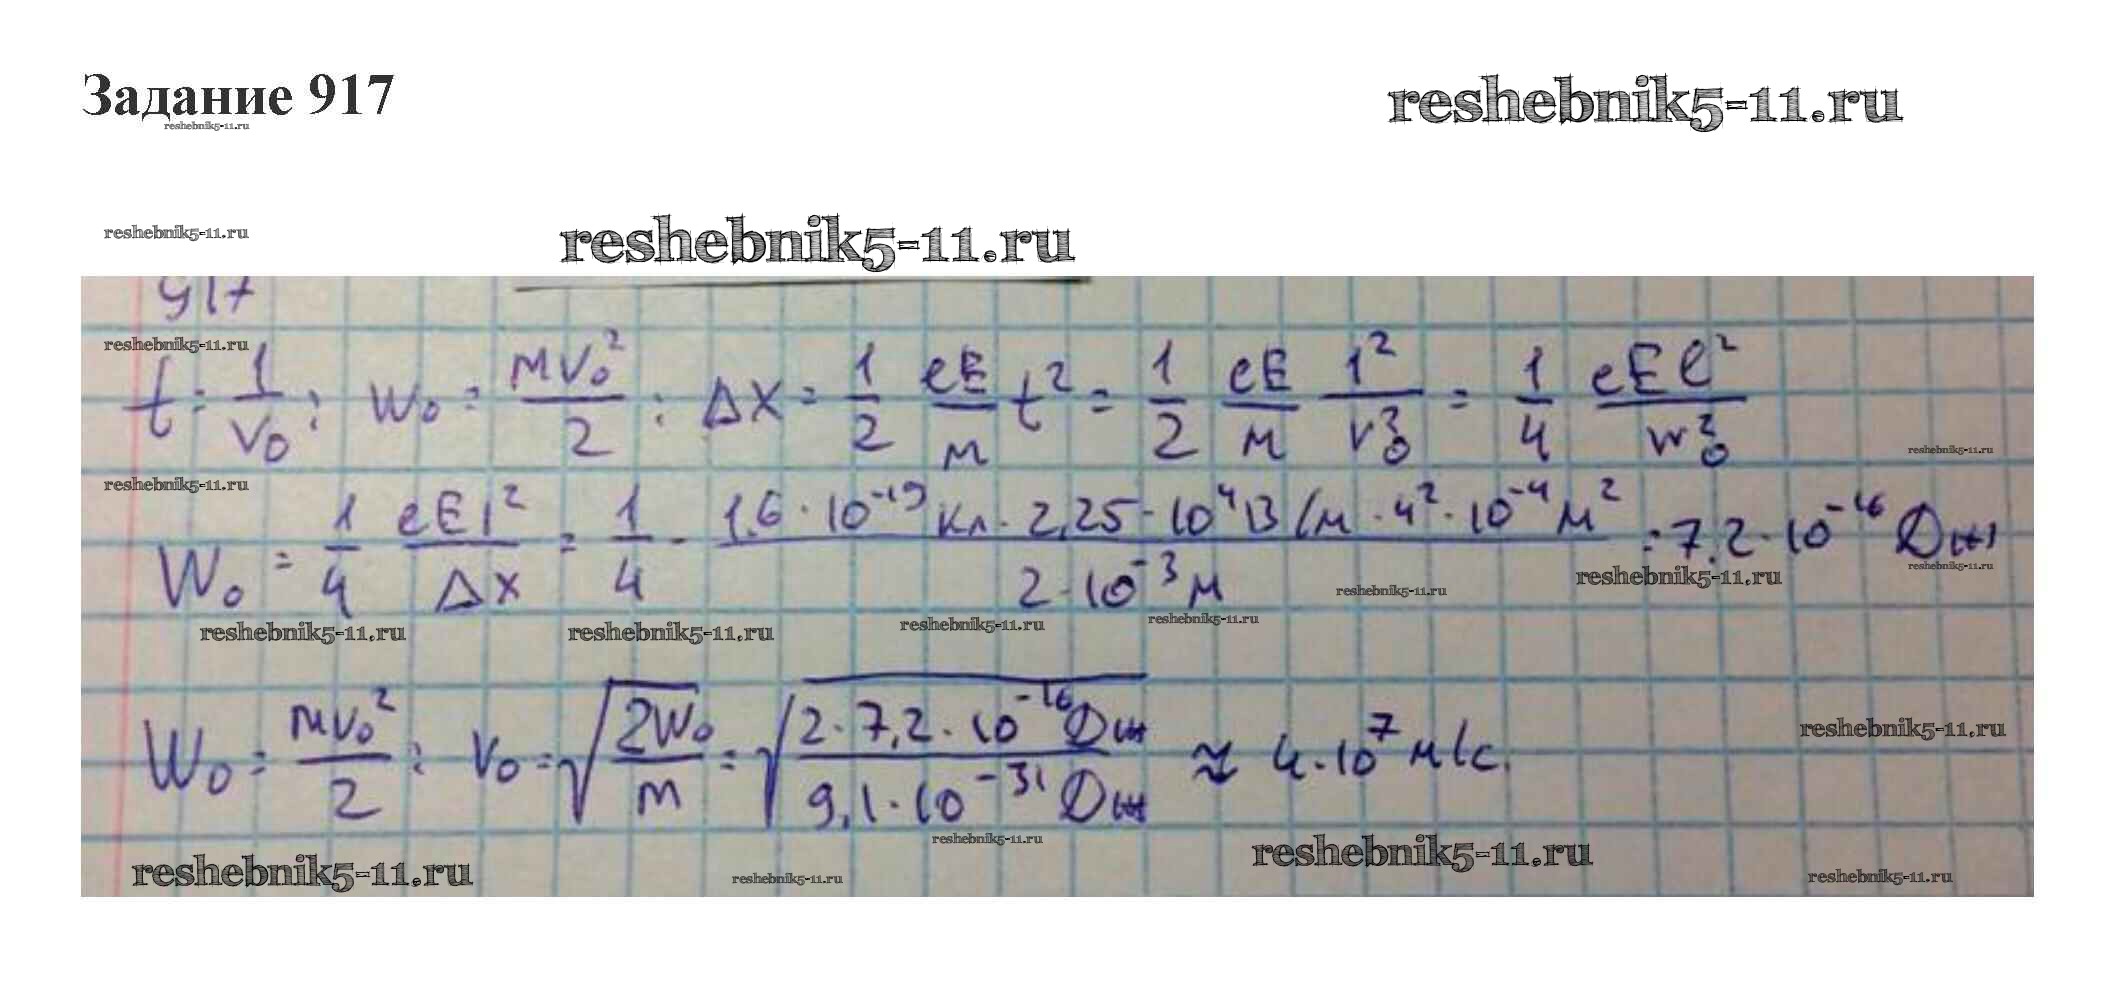 Задание 917
reshebnik5-11.ru
reshebnik5-11.ru
reshebnik5-11.ru
reshebnik5-11.ru
917
reshebnik5-11.ru
t = 1/v₀ ; W₀ = mv₀²/2 ; Δx = 1/2 eE/м t² = 1/2 eE/м 1²/v₀² = 1/4 eEl²/w₀²
reshebnik5-11.ru
reshebnik5-11.ru
W₀ = 1/4 eEl²/Δx = 1/4 · 1,6·10⁻¹⁹ Кл · 2,25·10⁴ В/м · 4²·10⁻⁴ м² / 2·10⁻³ м = 7,2·10⁻¹⁶ Дж
reshebnik5-11.ru
reshebnik5-11.ru
reshebnik5-11.ru
reshebnik5-11.ru
reshebnik5-11.ru
reshebnik5-11.ru
reshebnik5-11.ru
W₀ = mv₀²/2 ; v₀ = √(2W₀/m) = √(2·7,2·10⁻¹⁶ Дж / 9,1·10⁻³¹ Дж) ≈ 4·10⁷ м/с.
reshebnik5-11.ru
reshebnik5-11.ru
reshebnik5-11.ru
reshebnik5-11.ru
reshebnik5-11.ru
reshebnik5-11.ru